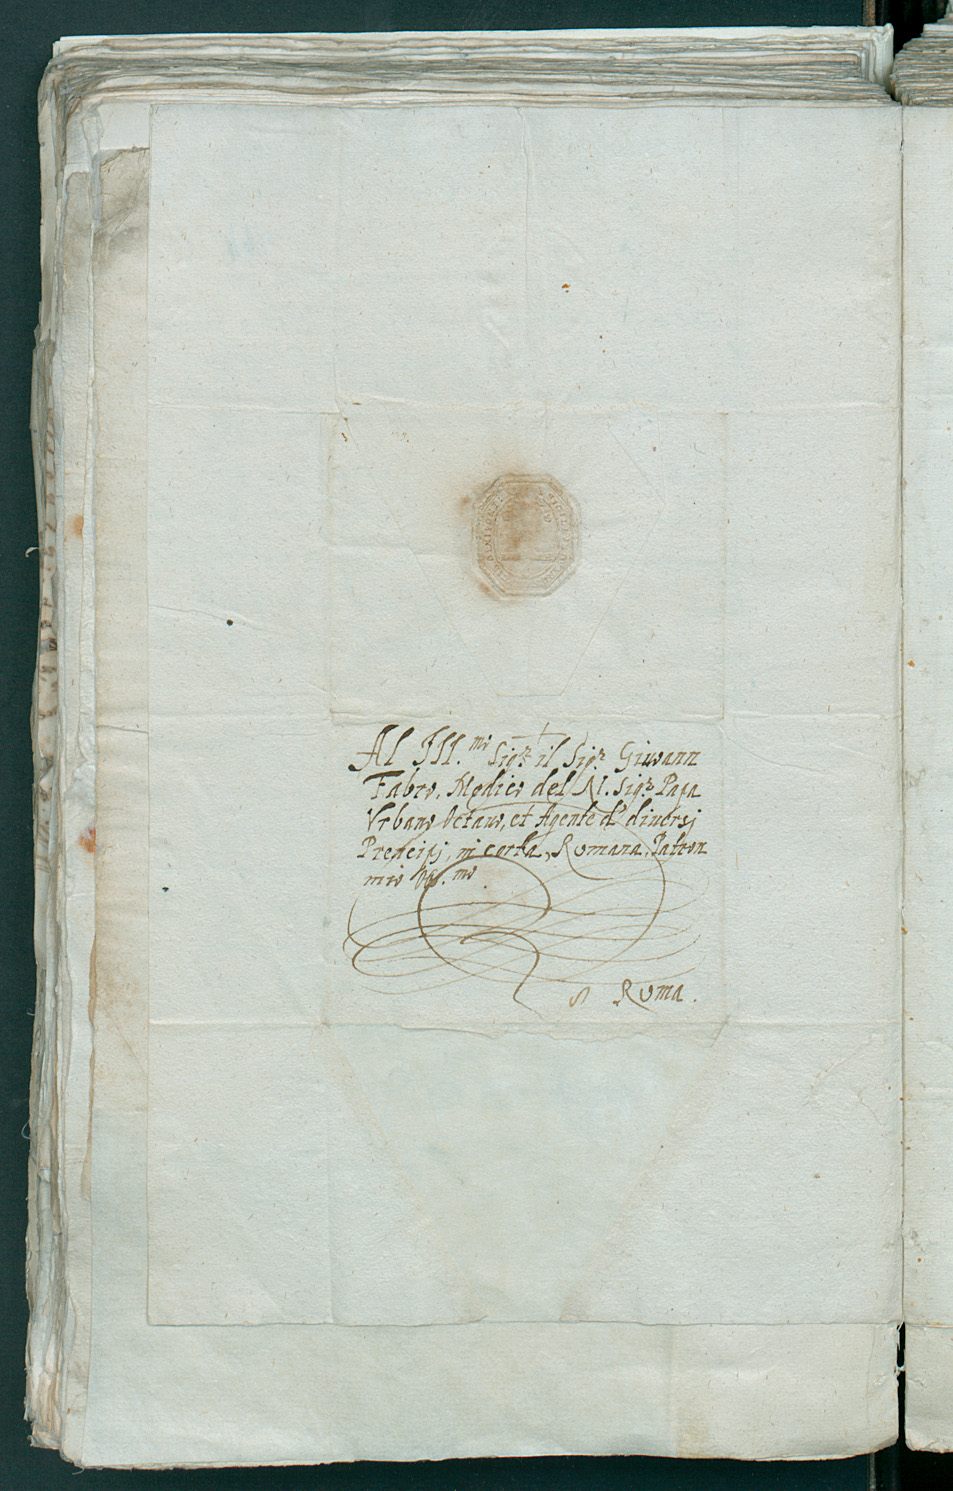 Al Ill.mo Sigr il Sigr Giuvann
Fabro, Medico del N. Sigr Papa
Vrbano Octavo, et Agente d' diuersj
Prencipj, in corta, Romana, Patron
mio oss.mo
Roma.